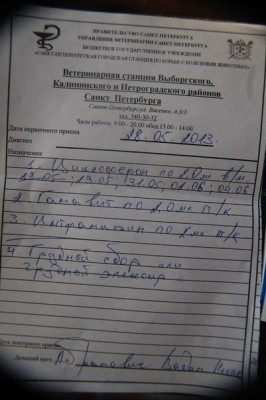 ПРАВИТЕЛЬСТВО САНКТ-ПЕТЕРБУРГА
УПРАВЛЕНИЕ ВЕТЕРИНАРИИ САНКТ-ПЕТЕРБУРГА
БЮДЖЕТНОЕ ГОСУДАРСТВЕННОЕ УЧРЕЖДЕНИЕ
«САНКТ-ПЕТЕРБУРГСКАЯ ГОРОДСКАЯ СТАНЦИЯ ПО БОРЬБЕ С БОЛЕЗНЯМИ ЖИВОТНЫХ»
Ветеринарная станция Выборгского,
Калининского и Петроградского районов
Санкт Петербурга
Санкт-Петербург ул.
тел. 540-30-32
Часы работы: 9.00 - 20.00 обед 13.00 - 14.00
Дата первичного приема 28.05.2013.
Диагноз
Назначения
1. Циклоферон по 2,0 мл в/м
28.05; 29.05; 31.05; 02.06; 04.06
2. Гамавит по 2,0 мл п/к
3. по 2 мл п/к
4. Грудной сбор или
грудной эликсир
Дата повторного приема